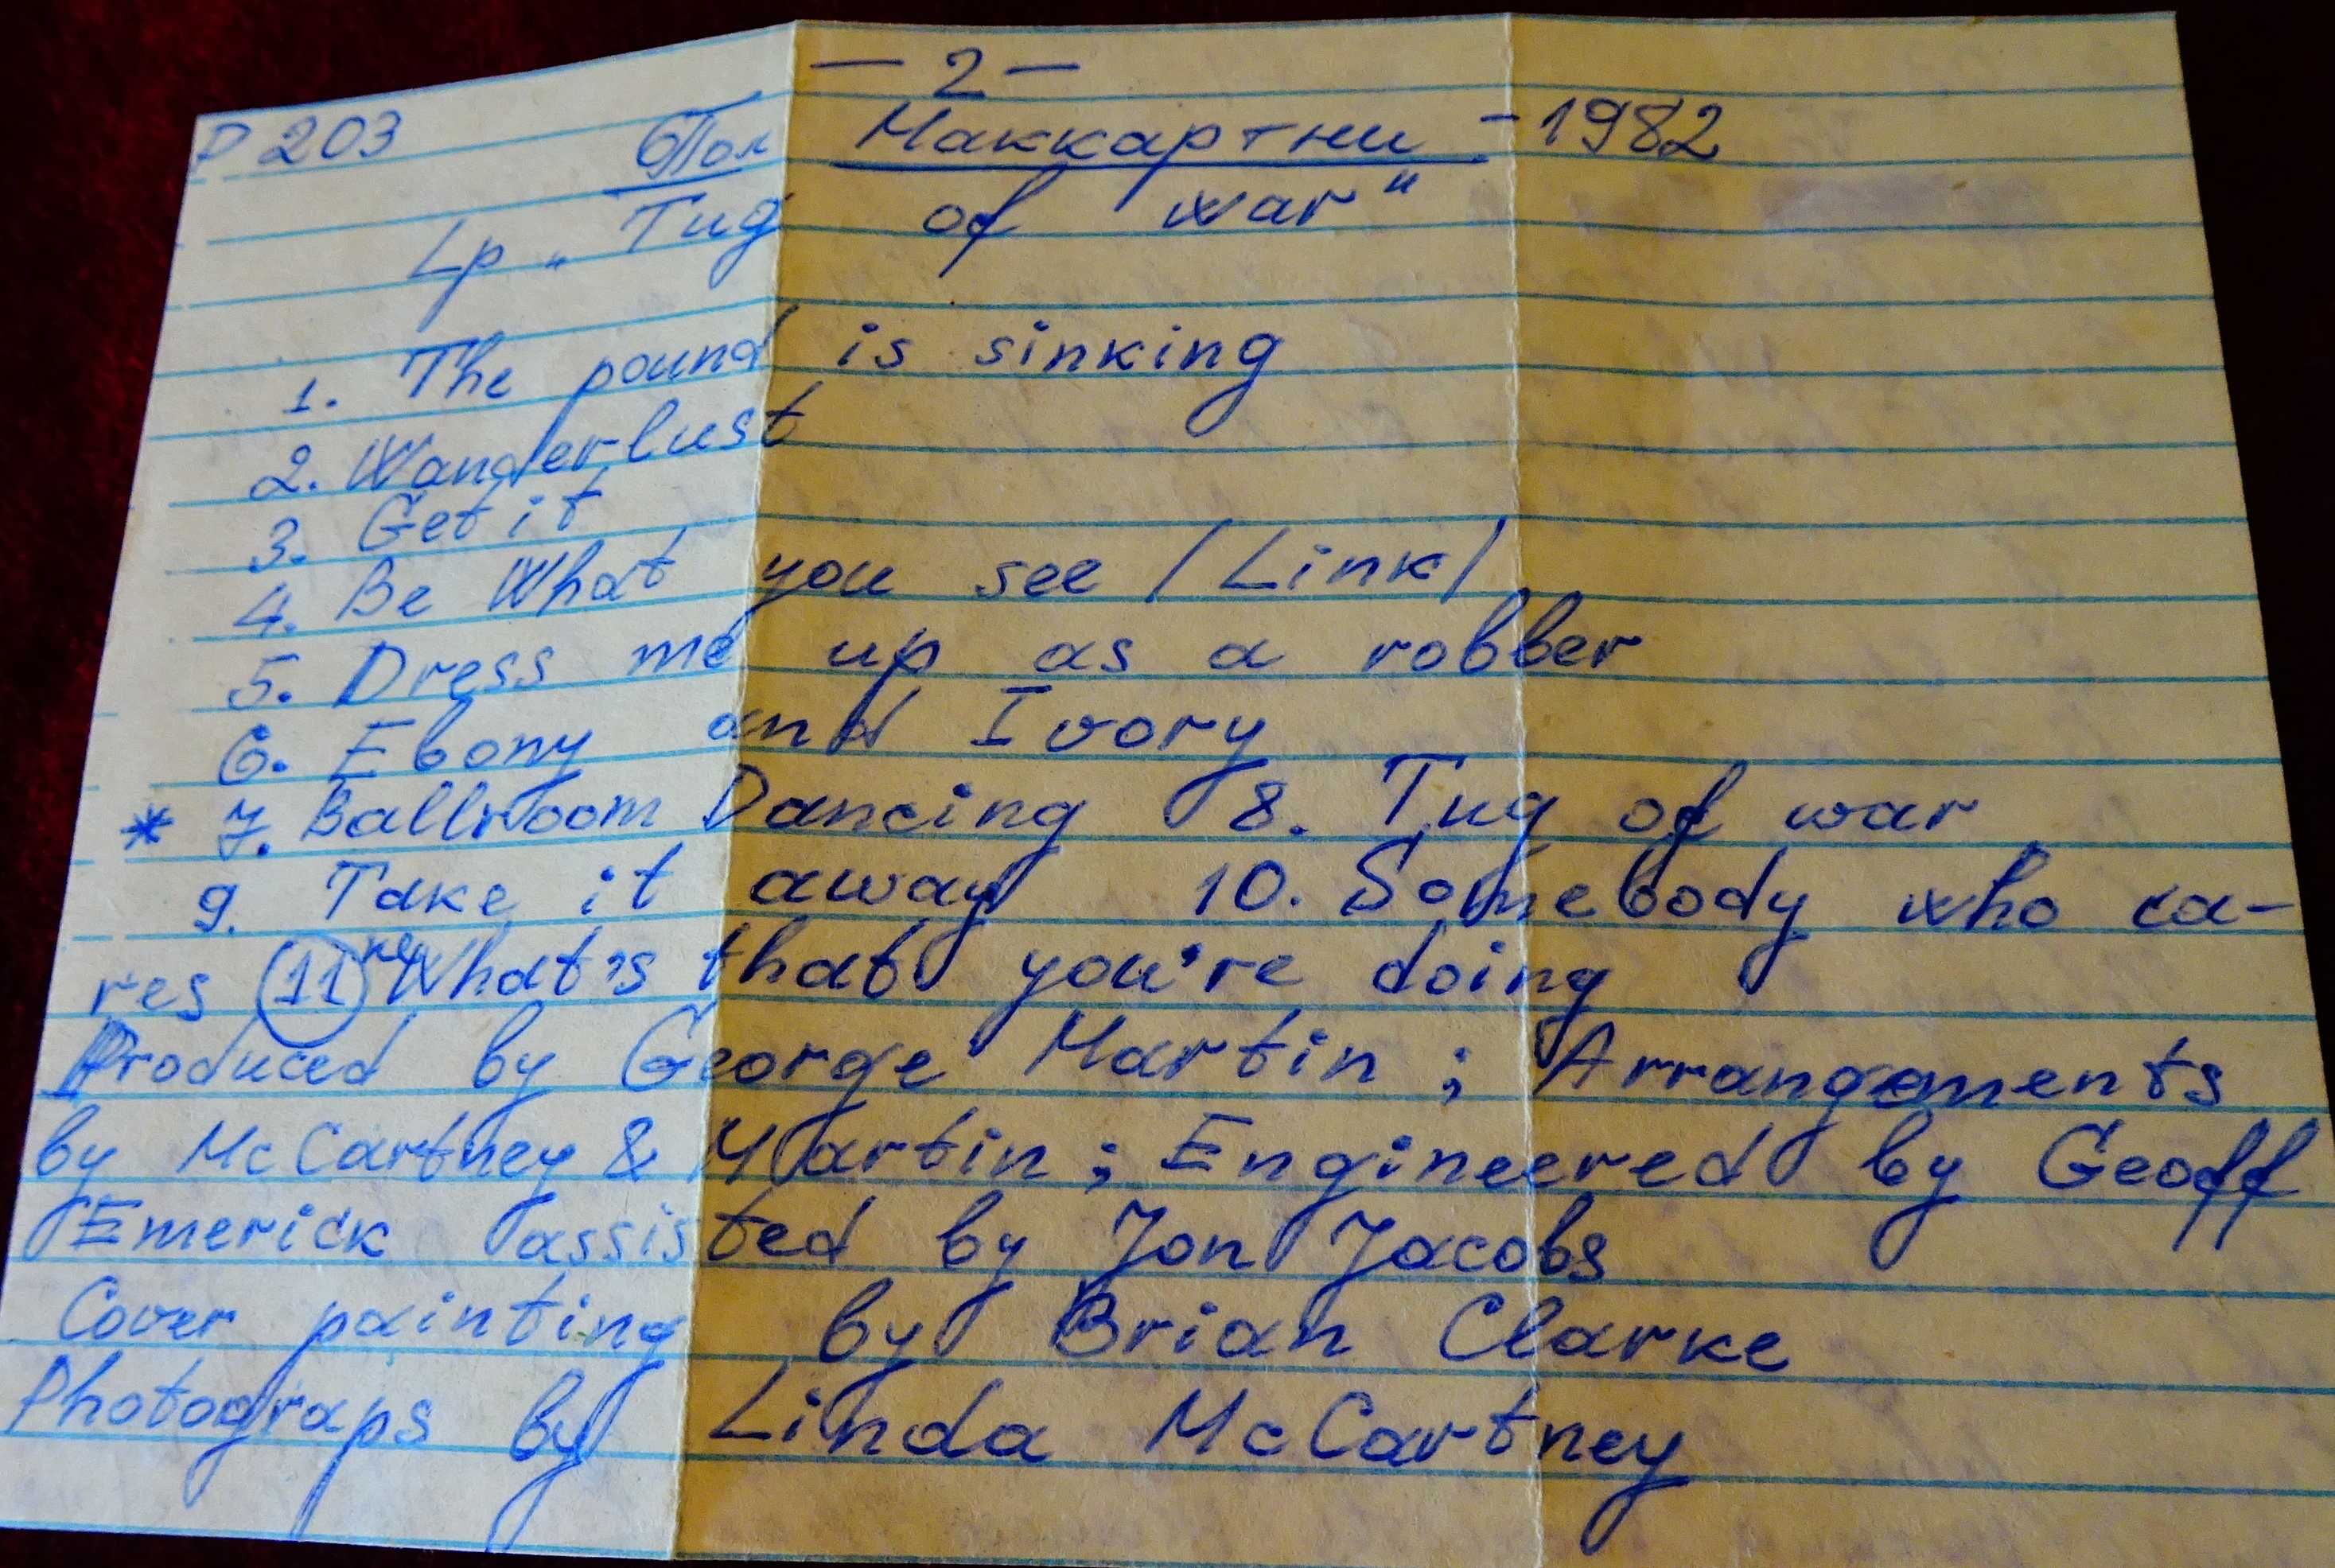 — 2 —
P 203 Пол Маккартни - 1982
Lp „Tug of war"
1. The pound is sinking
2. Wanderlust
3. Get it
4. Be What you see /Link/
5. Dress me up as a robber
6. Ebony and Ivory
* 7. Ballroom Dancing 8. Tug of war
9. Take it away 10. Somebody who ca-
res 11 What's that you're doing
Produced by George Martin ; Arrangements
by McCartney & Martin ; Engineered by Geoff
Emerick assisted by Jon Jacobs
Cover painting by Brian Clarke
Photograps by Linda McCartney